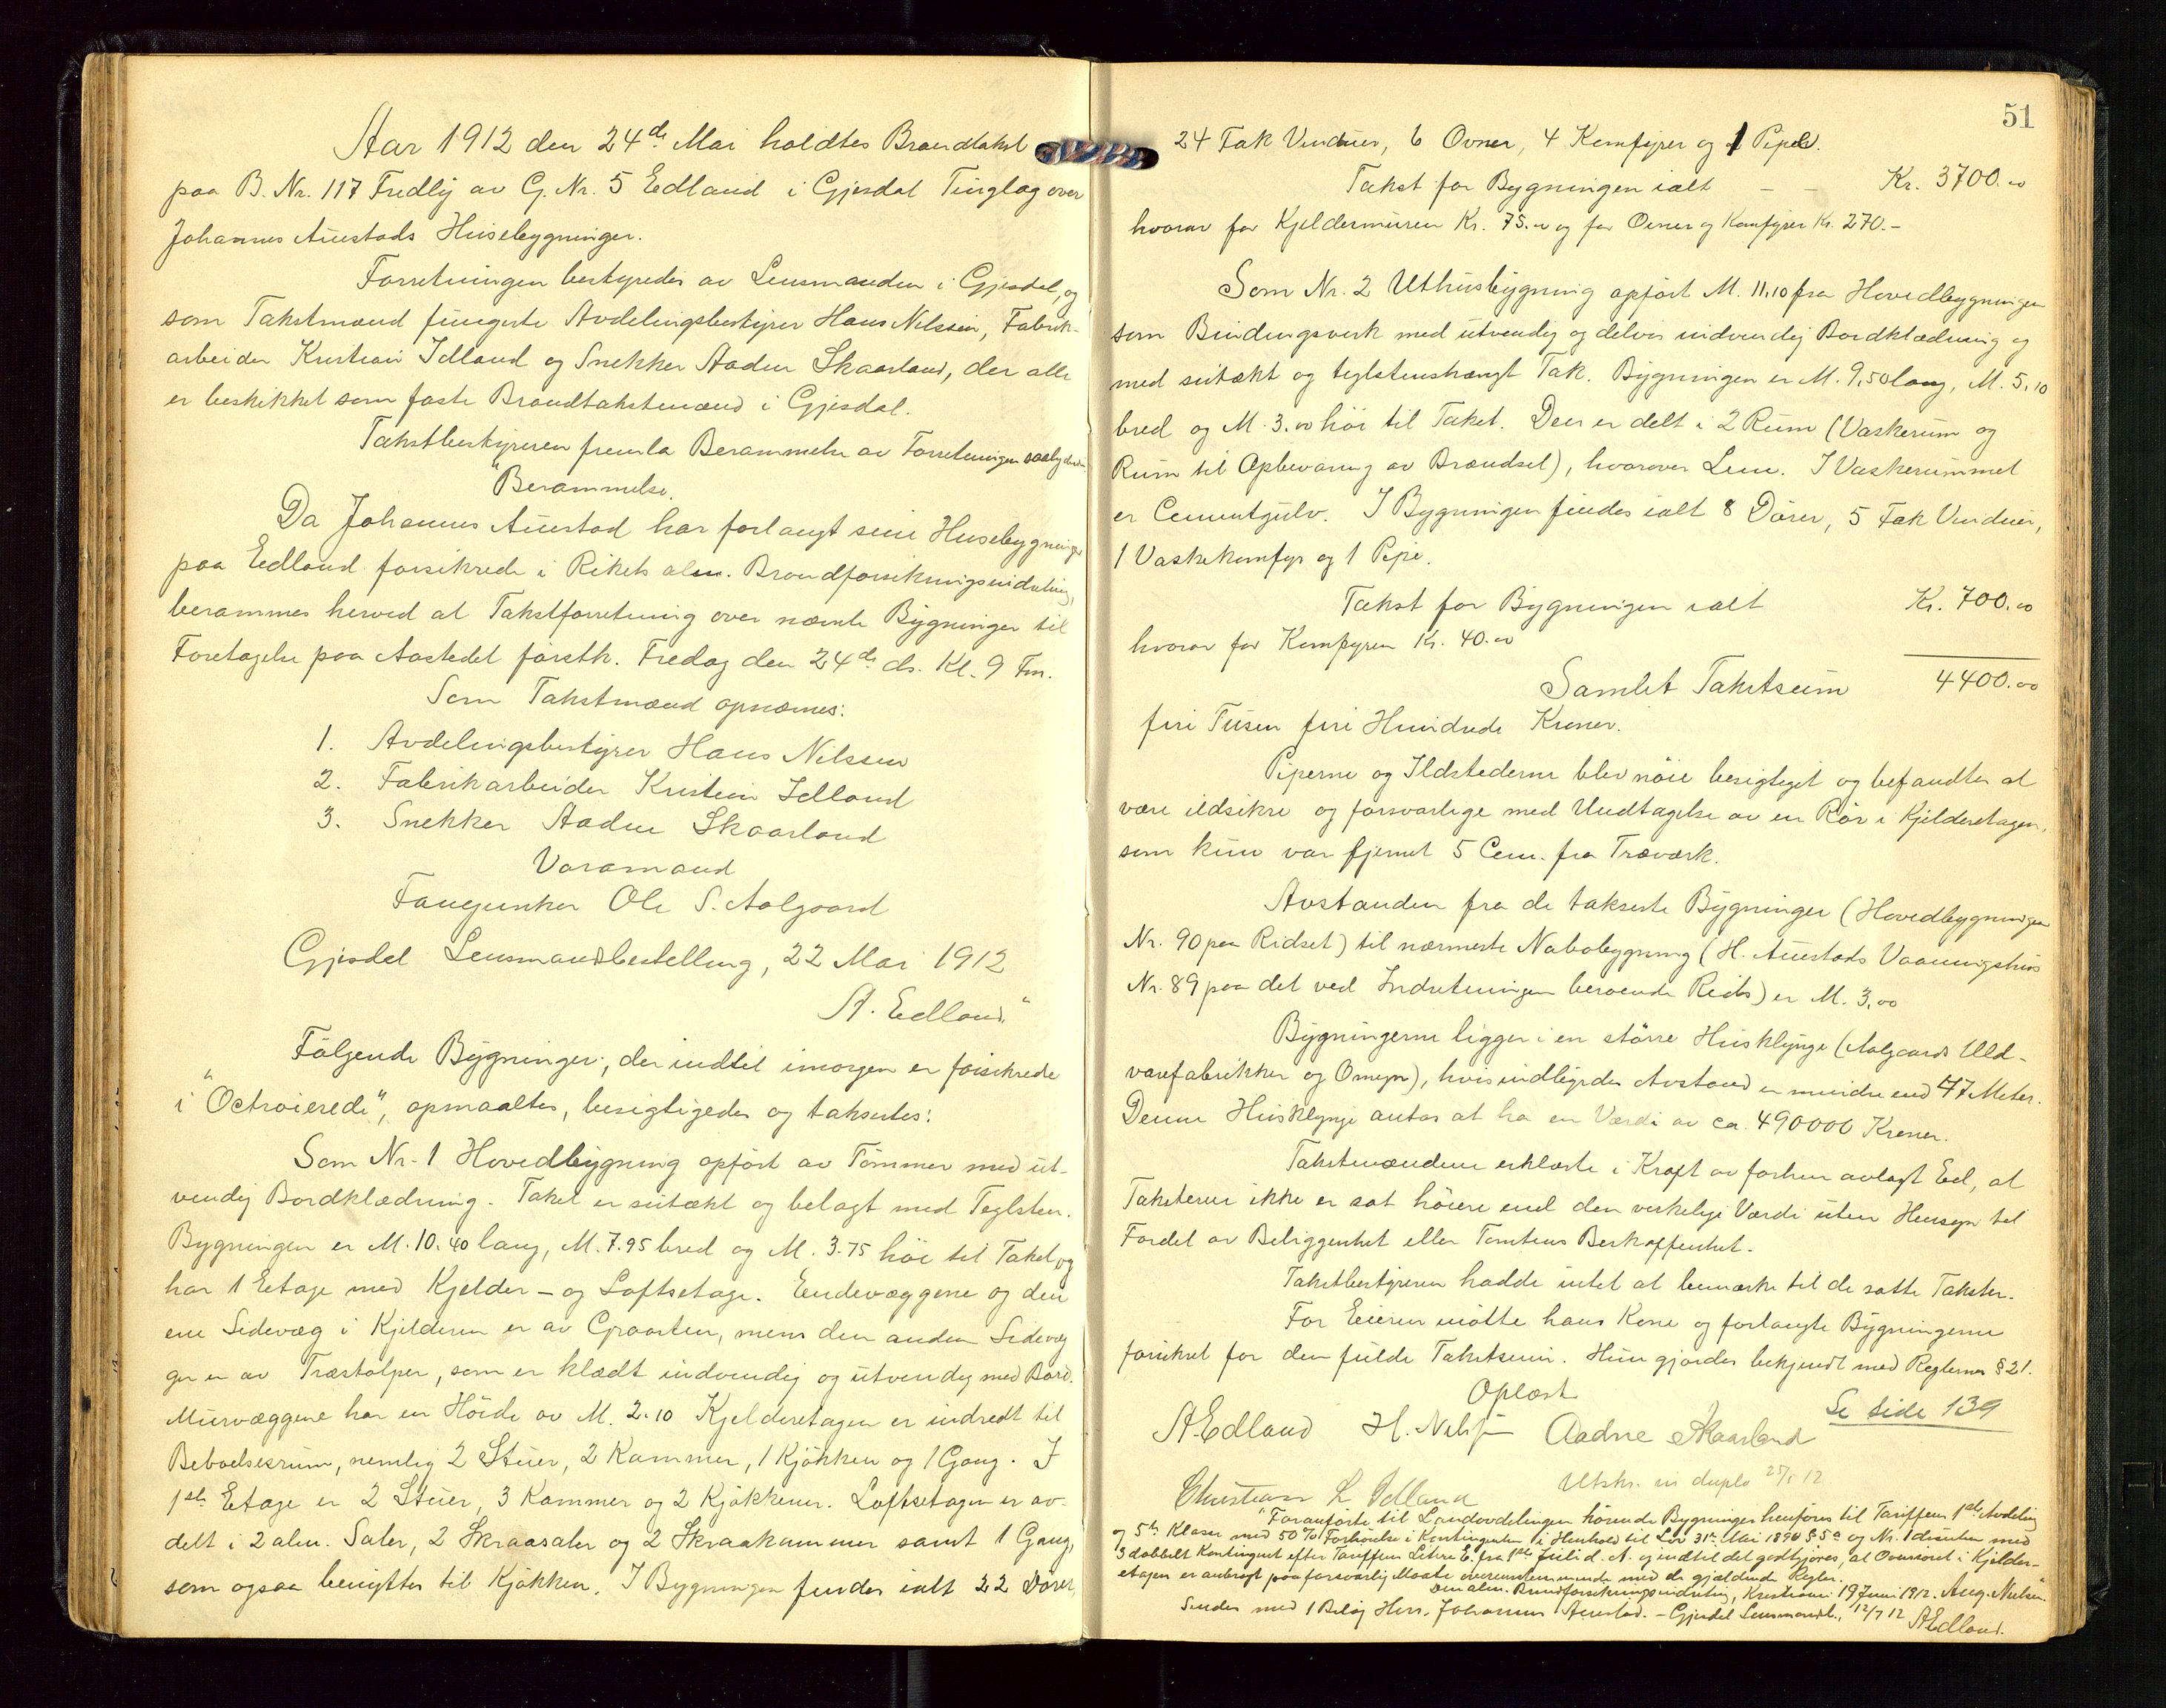 Aar 1912 den 24de Mai holdtes Brandtakst
paa B. Nr. 117 Fredly av G. Nr. 5 Edland i Gjesdal Tinglag over
Johannes Auestads Husebygninger.
Forretningen bestyredes av Lensmanden i Gjesdal, og
som Takstmænd fungerte Avdelingsbestyrer Hans Nilssen, Fabrik-
arbeider Kristian Idland og Snekker Aadne Skaarland, der alle
er beskikket som faste Brandtakstmænd i Gjesdal.
Takstbestyreren fremla Berammelse av Forretningen saalydende
"Berammelse.
Da Johannes Auestad har forlangt sine Husebygninger
paa Edland forsikrede i Rikets alm. Brandforsikringsindretning,
berammes herved at Takstforretning over nævnte Bygninger til
Foretagelse paa Aastedet førstk. Fredag den 24de ds. Kl. 9 Fm.
Som Takstmænd opnævnes:
1. Avdelingsbestyrer Hans Nilssen
2. Fabrikarbeider Kristian Idland
3. Snekker Aadne Skaarland
Varamand
Ole S. Aalgaard
Gjesdal Lensmandsbestilling, 22 Mai 1912
A. Edland"
Følgende Bygninger, der indtil imorgen er forsikrede
i "Octroierede", opmaaltes, besigtigedes og taksertes:
Som Nr. 1 Hovedbygning opført av Tømmer med ut-
vendig Bordklædning. Taket er sutækt og belagt med Teglsten.
Bygningen er M. 10.40 lang, M. 7.95 bred og M. 3.75 høi til Taket, og
har 1 Etage med Kjelder- og Loftsetage. Endevæggene og den
ene Sidevæg i Kjelderen er av Graasten, mens den anden Sidevæg
ger er av Træstolper, som er klædt indvendig og utvendig med Bord.
Murvæggene har en Høide av M. 2.10 Kjelderetagen er indredt til
Beboelsesrum, nemlig 2 Stuer, 2 Kammer, 1 Kjøkken og 1 Gang. I
1ste Etage er 2 Stuer, 3 Kammer og 2 Kjøkkener. Loftsetagen er av-
delt i 2 alm. Saler, 2 Skraasaler og 2 Skraakammer samt 1 Gang,
som ogsaa benyttes til Kjøkken. I Bygningen findes ialt 22 Dører,
51
24 Fak Vinduer, 6 Ovner, 4 Komfyrer og 1 Pipe.
Takst for Bygningen ialt – – Kr. 3700.00
hvorav for Kjeldermuren Kr. 75.00 og for Ovner og Komfyrer Kr. 270.–
Som Nr. 2 Uthusbygning opført M. 11.10 fra Hovedbygningen
som Bindingsverk med utvendig og delvis indvendig Bordklædning og
med sutækt og teglstenshængt Tak. Bygningen er M. 9,50 lang, M. 5,10
bred og M. 3.00 høi til Taket. Den er delt i 2 Rum (Vaskerum og
Rum til Opbevaring av Brændsel), hvorover Lem. I Vaskerummet
er Cementgulv. I Bygningen findes ialt 8 Dører, 5 Fak Vinduer,
1 Vaskekomfyr og 1 Pipe.
Takst for Bygningen ialt Kr. 700.00
hvorav for Komfyren Kr. 40.00
Samlet Takstsum 4400.00
fire Tusen fire Hundrede Kroner.
Piperne og Ildstederne blev nøie besigtiget og befandtes at
være ildsikre og forsvarlige med Undtagelse av en Rør i Kjelderetagen,
som kun var fjernet 5 Cem. fra Træværk.
Avstanden fra de takserte Bygninger (Hovedbygningen
Nr. 90 paa Ridset) til nærmeste Nabobygning (H. Auestads Vaaningshus
Nr. 89 paa det ved Indretningen beroende Rids) er M. 3,00
Bygningerne ligger i en større Husklynge (Aalgaards Uld-
varefabrikker og Omegn), hvis indbyrdes Avstand er mindre end 47 Meter.
Denne Husklynge antas at ha en Værdi av ca. 490000 Kroner.
Takstmændene erklærte i Kraft av forhen avlagt Eed, at
Taksterne ikke er sat høiere end den virkelige Værdi uten Hensyn til
Fordel av Beliggenhet eller Tomtens Beskaffenhet.
Takstbestyreren hadde intet at bemærke til de satte Takster.
For Eieren møtte hans Kone og forlangte Bygningerne
forsikret for den fulde Takstsum. Hun gjordes bekjendt med Reglernes § 21.
Oplæst
Se side 139
A. Edland H. Nilssen Aadne Skaarland
Christian L. Idland Utskr. in duplo 25/5 12
"Foranførte til Landavdelingen hørende Bygninger henføres til Tariffens 1ste Avdeling
og 5te Klasse med 50% Forhøielse i Kontingenten i Henhold til Lov 31te Mai 1890 § 5 a og Nr. 1 desuten med
3 dobbelt Kontingent efter Tariffens Litra E. fra 1ste Juli d. A. og indtil det godtgjøres, at Ovnsrøret i Kjelder-
etagen er anbragt paa forsvarlig Maate overensstemmende med de gjældende Regler.
Den alm. Brandforsikringsindretning, Kristiania 19 Juni 1912. Aug. Nielsen"
Sendes med 1 Bilag Herr. Johannes Auestad. – Gjesdal Lensmandsb., 12/7 12 A Edland.